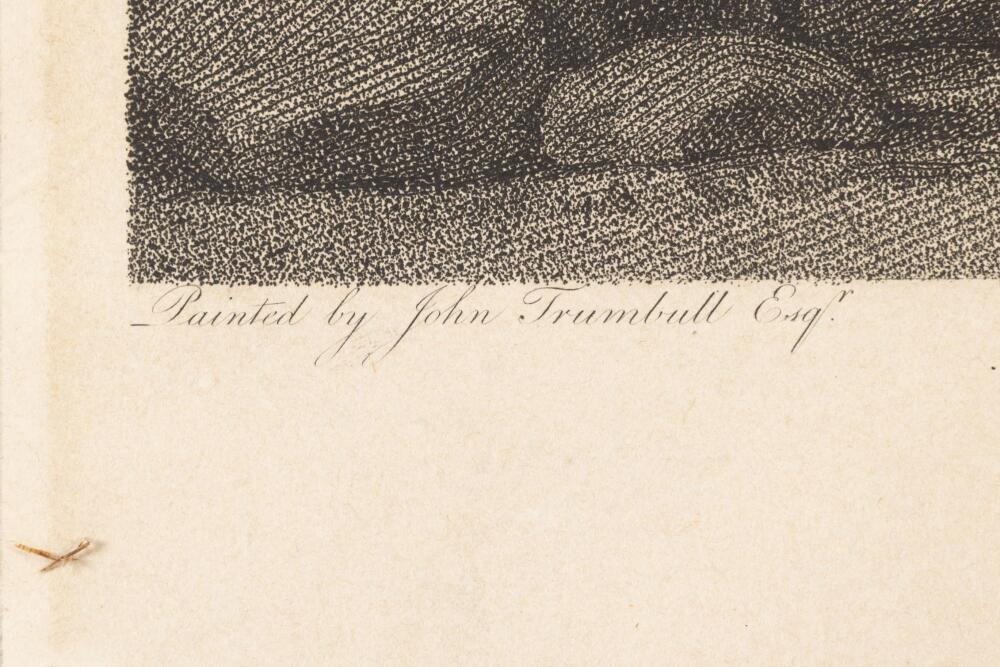 Painted by John Trumbull Esqr.